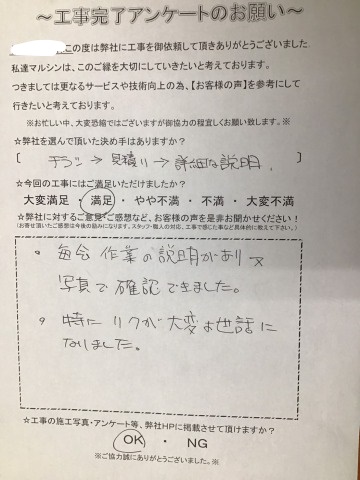 ～工事完了アンケートのお願い～
この度は弊社に工事を御依頼して頂きありがとうございました
私達マルシンは、このご縁を大切にしていきたいと考えております。
つきましては更なるサービスや技術向上の為、【お客様の声】を参考にして
行きたいと考えております。
※お忙しい中、大変恐縮ではございますが御協力の程宜しくお願い致します。※
☆弊社を選んで頂いた決め手はありますか？
[ チラシ→見積り→詳細な説明. ]
☆今回の工事にはご満足いただけましたか？
大変満足・満足・やや不満・不満・大変不満
☆弊社に対するご意見・ご感想など、お客様の声を是非お聞かせください！
(お寄せ頂いたご感想は今後の励みになります。スタッフ・職人の対応、工事で感じた事など具体的に教えて下さい。)
。毎会作業の説明があり又
写真で確認できました。
。特にリクが大変お世話に
なりました。
☆工事の施工写真・アンケート等、弊社HPに掲載させて頂けますか？
OK ・ NG
※ご協力誠にありがとうございました。※